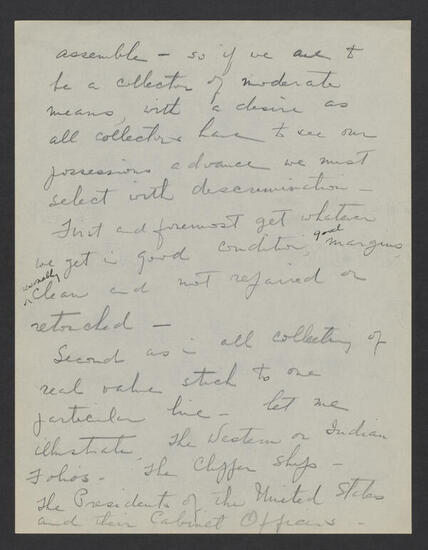 assemble – so if we are to
be a collector of moderate
means, with a desire as
all collectors have to see our
possessions advance we must
select with descrimination –
First and foremost get whatever
we get in good condition, good margins,
Clean and not repaired or
retouched –
Second as in all collecting of
real value stick to one
particular line – let me
illustrate. The Western or Indian
Folios – The Clipper Ships –
The Presidents of the United States
and their Cabinet Officers –